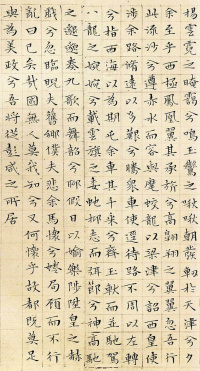 揚雲霓之晻藹兮鳴玉鸞之啾啾朝發軔於天津兮夕
余至乎西極鳳凰翼其承旂兮高翱翔之翼翼忽吾行
此流沙兮遵赤水而容與麾蛟龍以梁津兮詔西皇使
涉余路脩遠以多艱兮騰眾車使徑待路不周以左轉
兮指西海以為期屯余車其千乘兮齊玉軑而並馳駕
八龍之婉婉兮載雲旗之委蛇抑志而弭節兮神高馳
之邈邈奏九歌而舞韶兮聊假日以媮樂陟陞皇之赫
戲兮忽臨睨夫舊鄉僕夫悲余馬懷兮蜷局顧而不行
亂曰已矣哉國無人莫我知兮又何懷乎故都既莫足
與為美政兮吾將從彭咸之所居